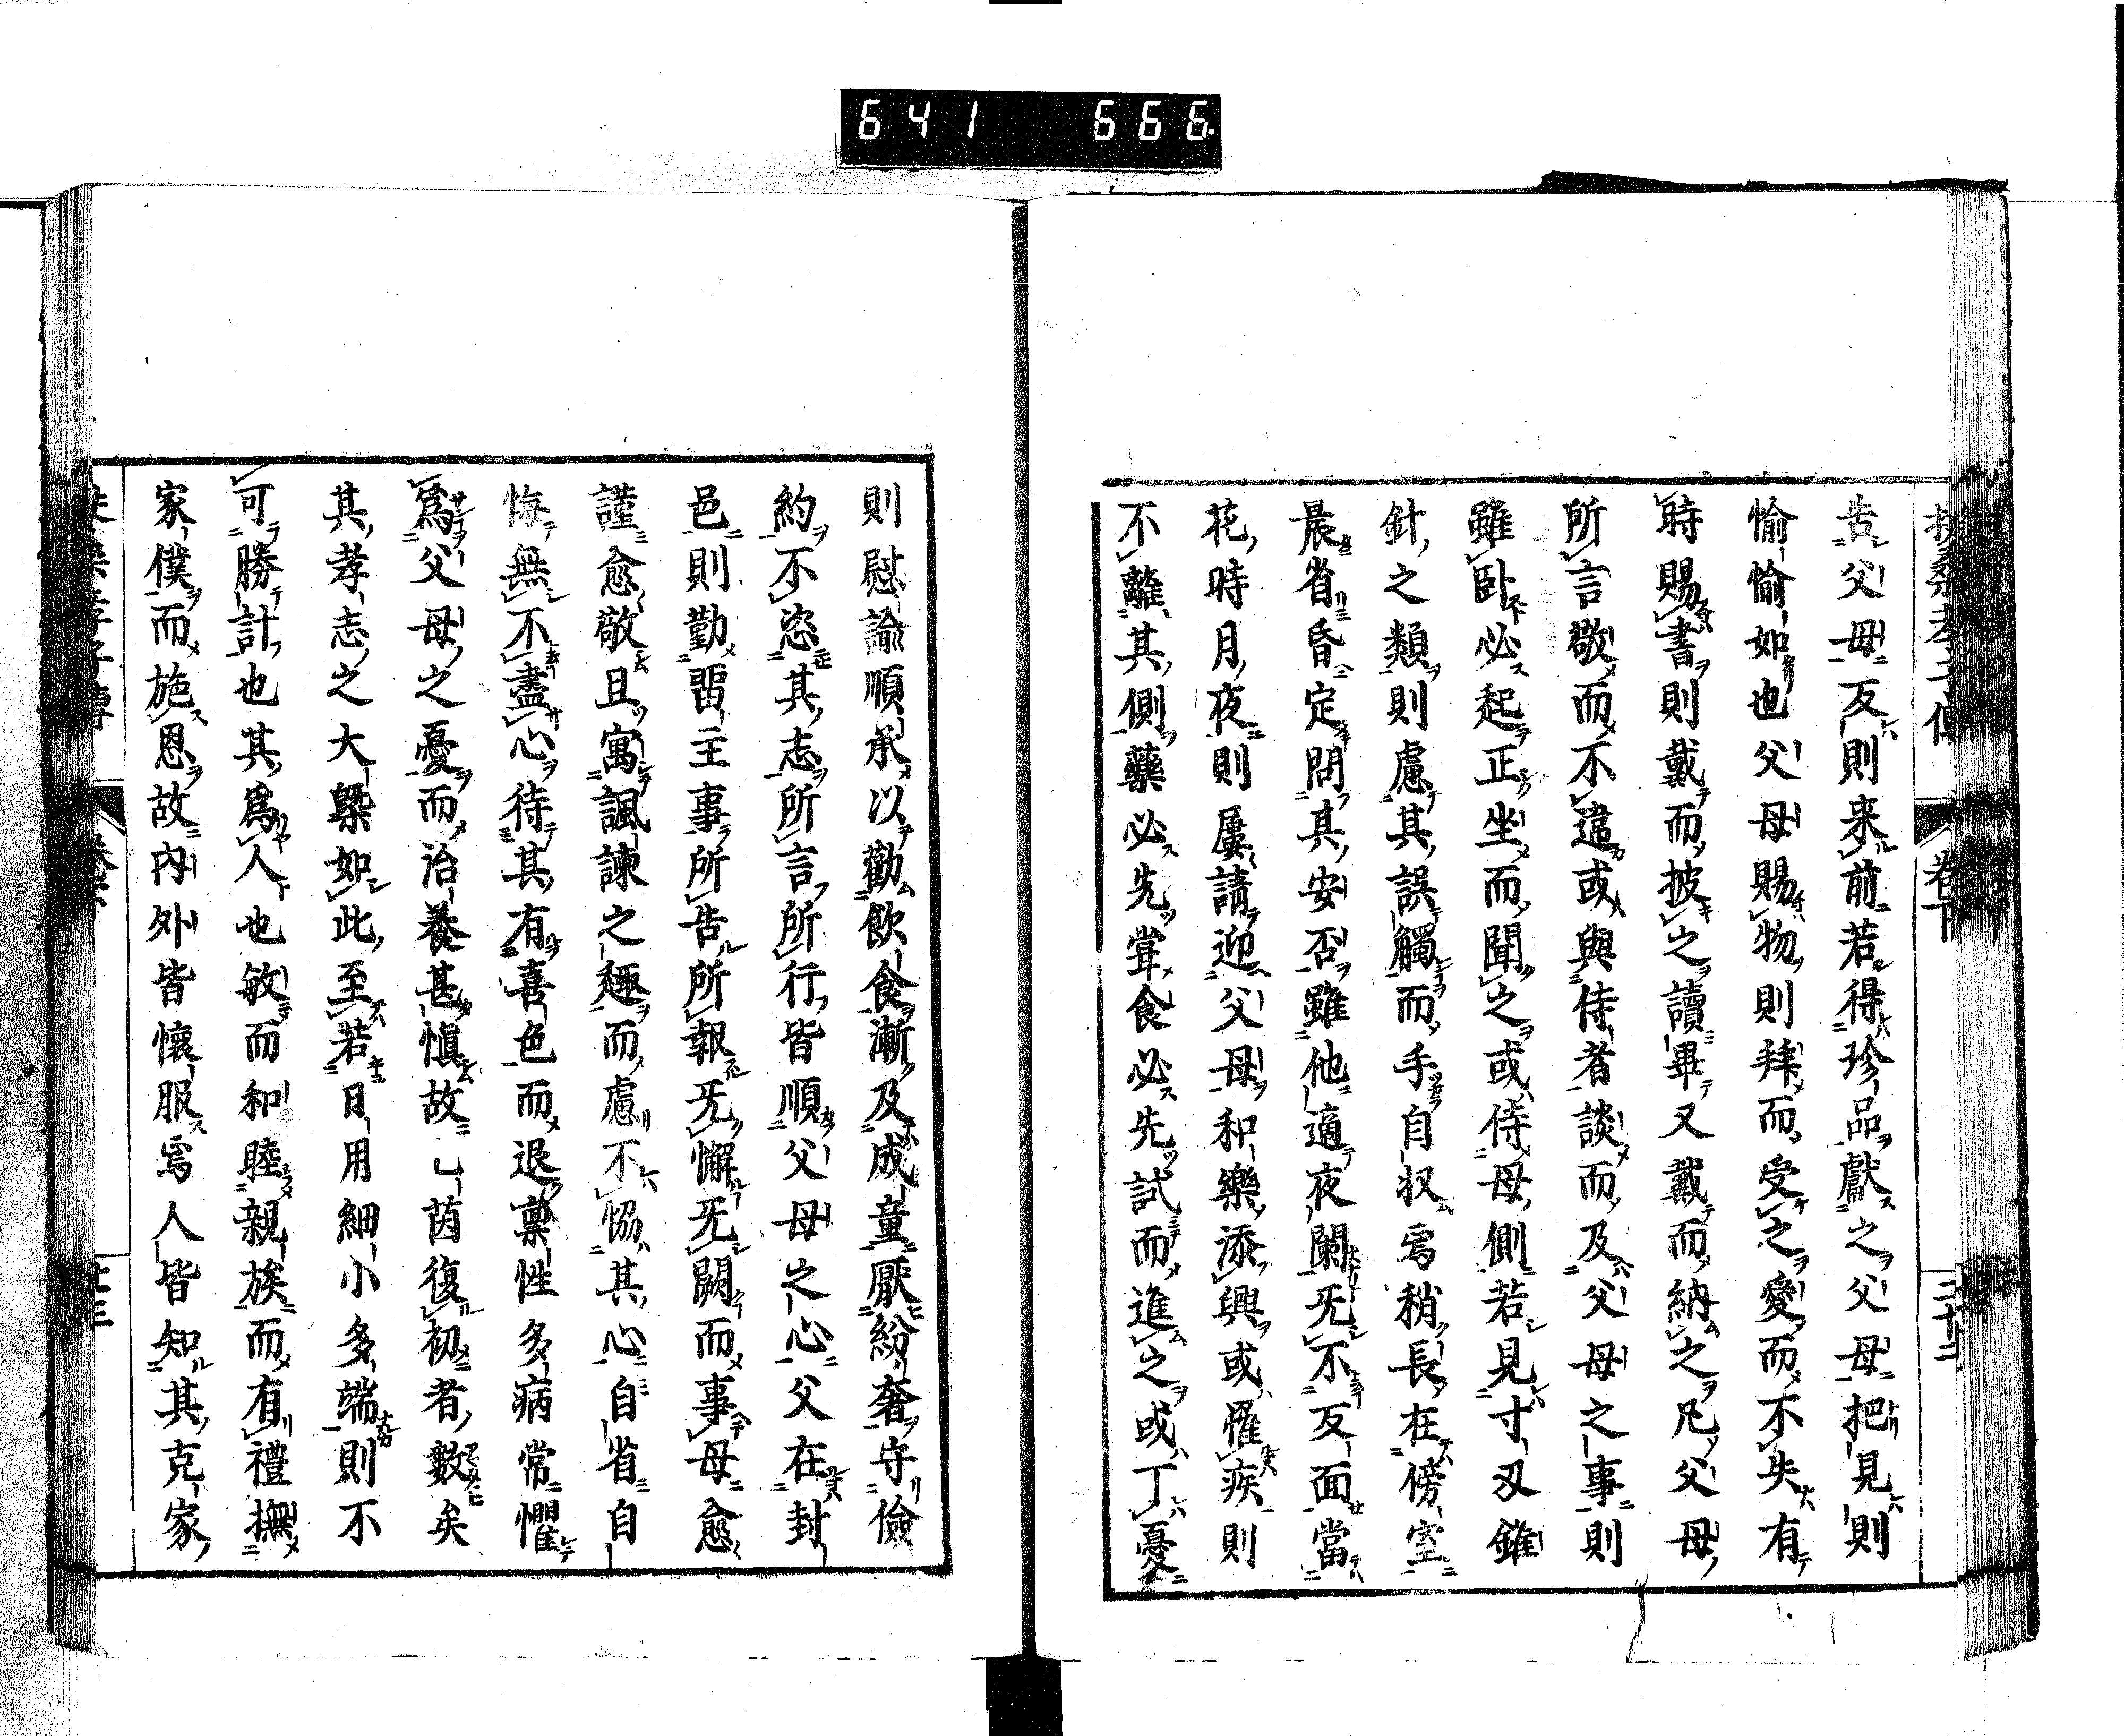 641 666
扶桑孝子傳 卷下 二十二
告父母反則来前若得珍品獻之父母把見則
愉愉如也父母賜物則拜而受之愛而不失有
時賜書則戴而披之讀畢又戴而納之凡父母
所言敬而不違或與侍者談而及父母之事則
雖臥必起正坐而聞之或侍母側若見寸刃錐
針之類則慮其誤觸而手自収焉稍長在傍室
晨省昏定問其安否雖他適夜闌旡不反面當
花時月夜則屢請迎父母和樂添興或罹疾則
不離其側藥必先甞食必先試而進之或丁憂
則慰諭順承以勸飲食漸及成童厭紛奢守儉
約不恣其志所言所行皆順父母之心父在封
邑則勤畱主事所告所報旡懈旡闕而事母愈
謹愈敬且寓諷諫之趣而慮不恊其心自省自
悔無不盡心待其有喜色而退稟性多病常懼
爲父母之憂而治養甚愼故乚茵復初者數矣
其孝志之大槩如此至若日用細小多端則不
可勝計也其爲人也敏而和睦親族而有禮撫
家僕而施恩故內外皆懷服焉人皆知其克家